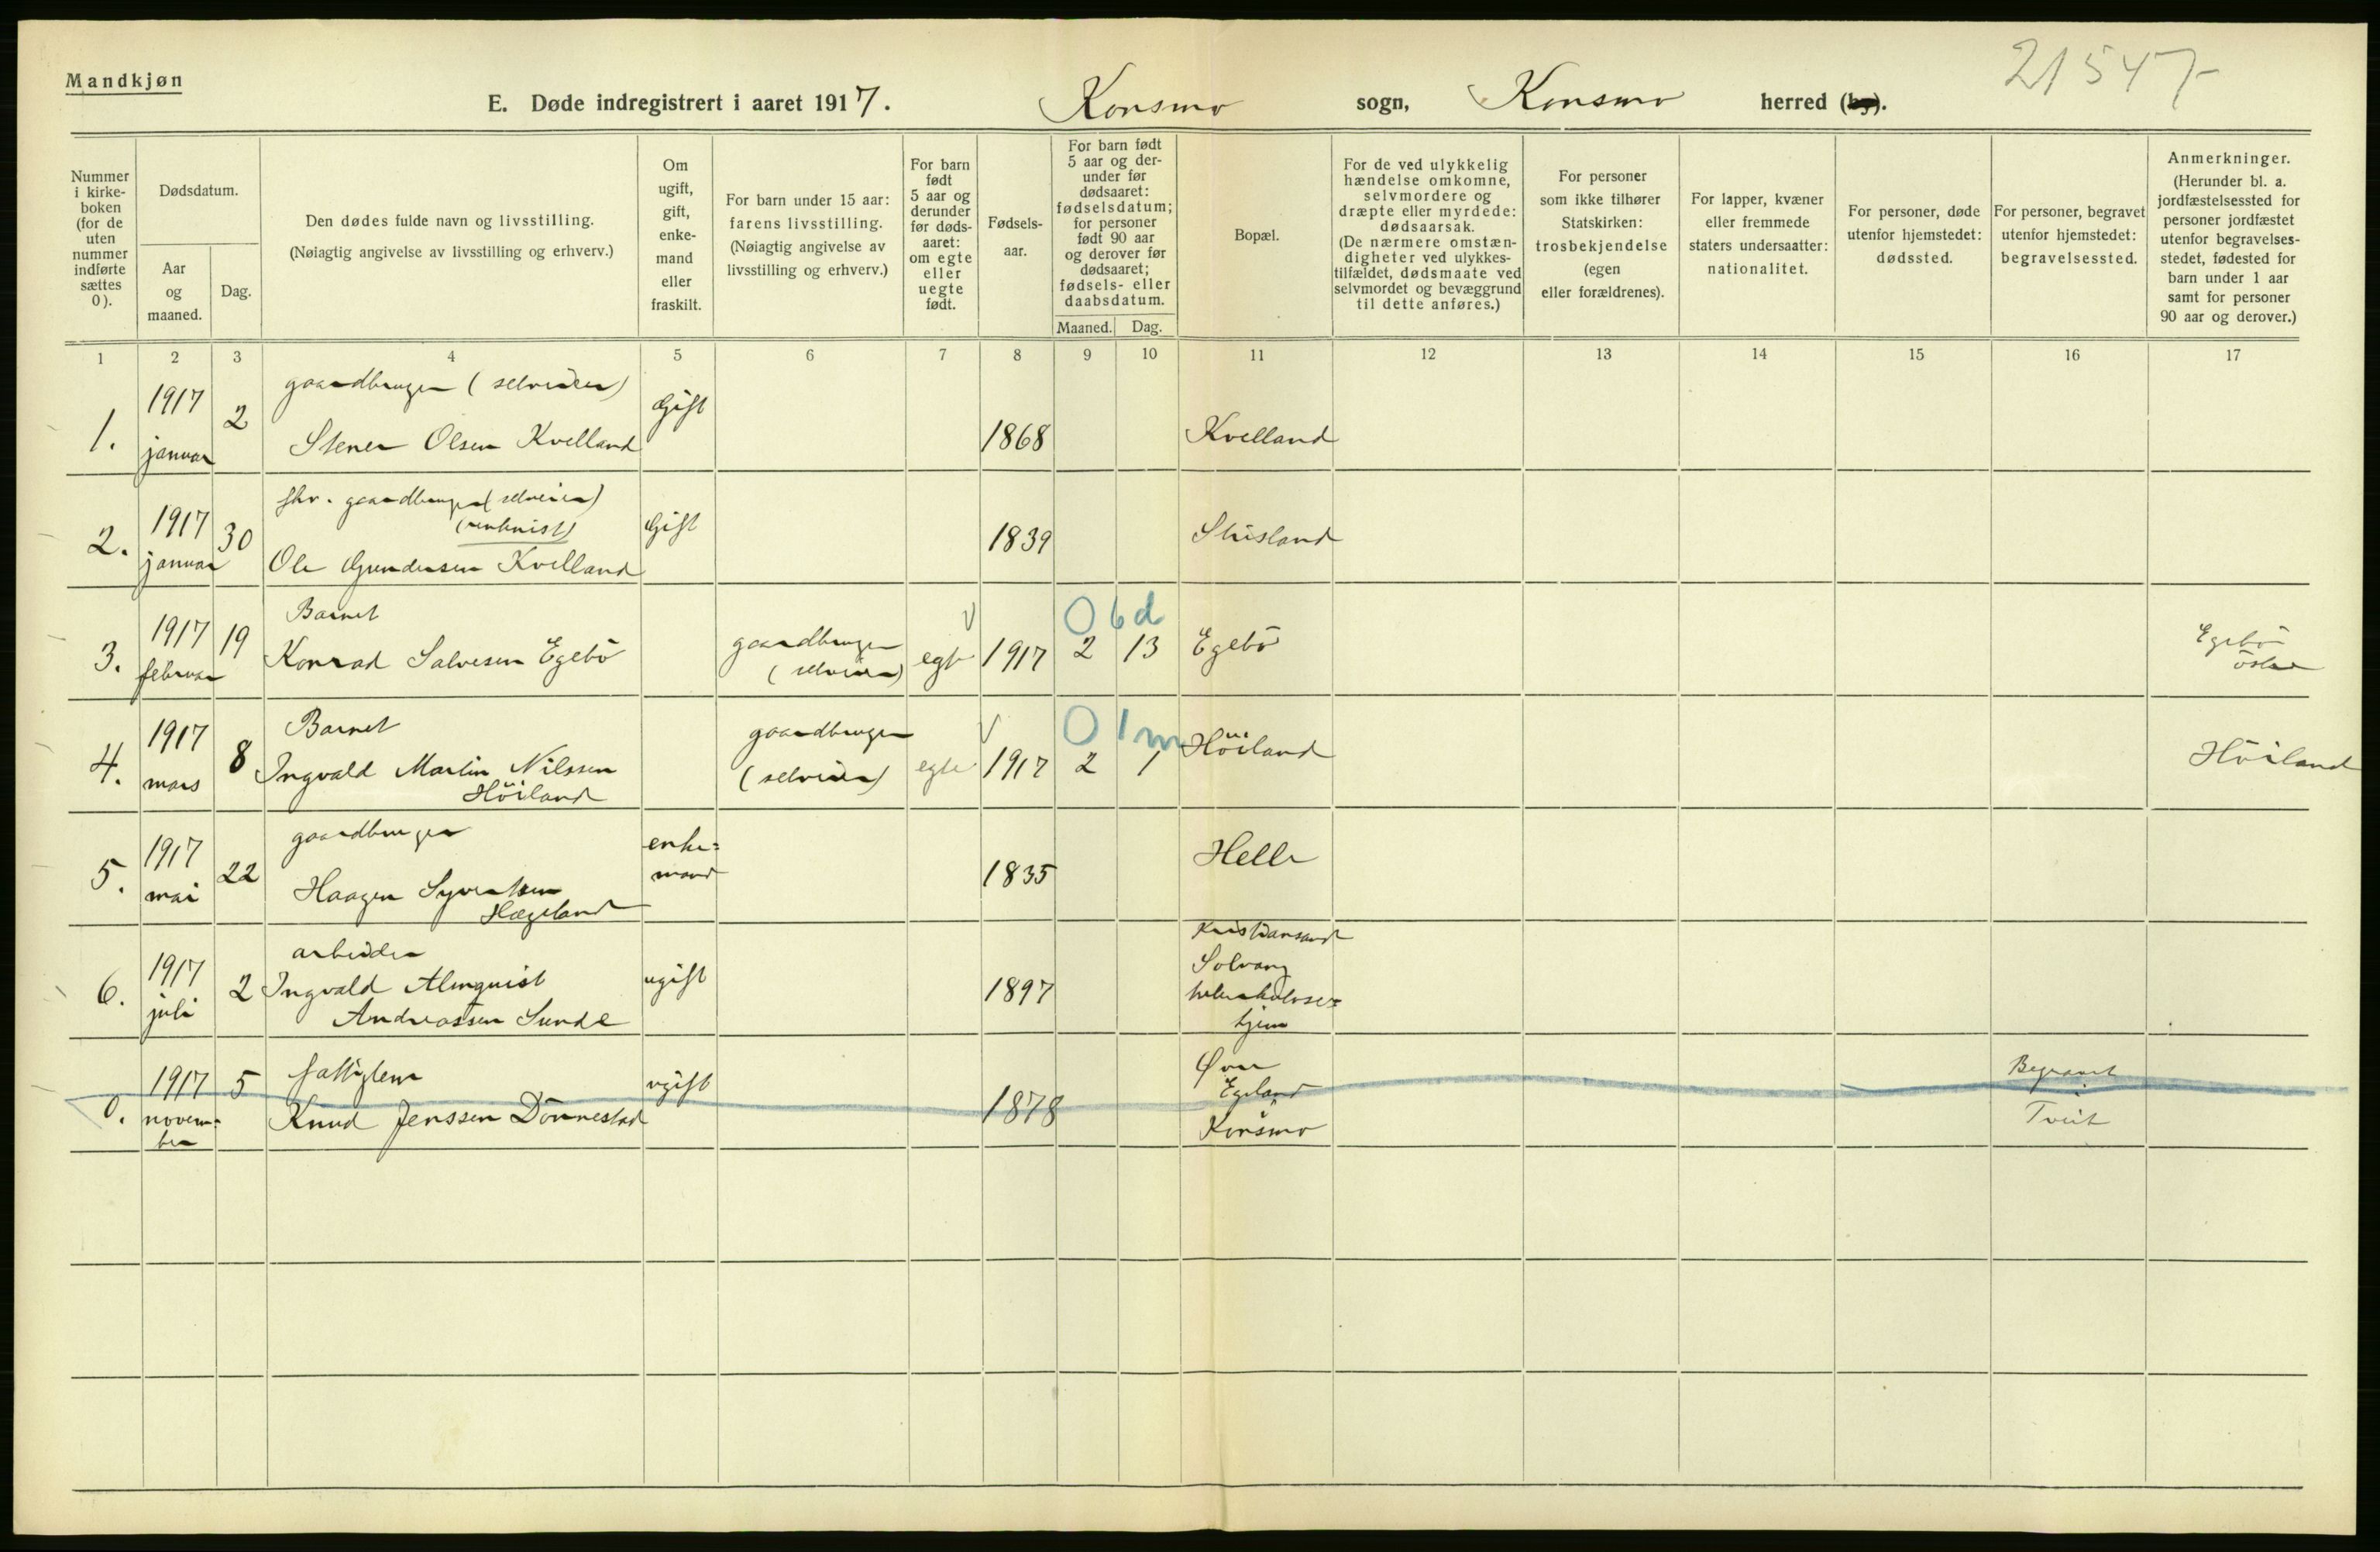 Mandkjøn
21547
E. Døde indregistrert i aaret 1917. Konsmo sogn, Konsmo herred (by).
Nummer i kirke- boken (for de uten nummer indførte sættes 0).
Dødsdatum.
Aar og maaned.
Dag.
Den dødes fulde navn og livsstilling.
(Nøiagtig angivelse av livsstilling og erhverv.)
Om ugift, gift, enke- mand eller fraskilt.
For barn under 15 aar: farens livsstilling.
(Nøiagtig angivelse av livsstilling og erhverv.)
For barn født 5 aar og derunder før døds- aaret: om egte eller uegte født.
Fødsels- aar.
For barn født 5 aar og der- under før dødsaaret: fødselsdatum; for personer født 90 aar og derover før dødsaaret; fødsels- eller daabsdatum.
Maaned. Dag.
Bopæl.
For de ved ulykkelig hændelse omkomne, selvmordere og dræpte eller myrdede: dødsaarsak.
(De nærmere omstæn- digheter ved ulykkes- tilfældet, dødsmaate ved selvmordet og bevæggrund til dette anføres.)
For personer som ikke tilhører Statskirken: trosbekjendelse (egen eller forældrenes).
For lapper, kvæner eller fremmede staters undersaatter: nationalitet.
For personer, døde utenfor hjemstedet: dødssted.
For personer, begravet utenfor hjemstedet: begravelsessted.
Anmerkninger.
(Herunder bl. a. jordfæstelsessted for personer jordfæstet utenfor begravelses- stedet, fødested for barn under 1 aar samt for personer 90 aar og derover.)
1 2 3 4 5 6 7 8 9 10 11 12 13 14 15 16 17
1. 1917 januar 2 gaardbruger (selveier) Gift 1868 Kvelland
Stener Olsen Kvelland
2. 1917 januar 30 fhv. gaardbruger (selveier) Gift 1839
Ole Gundersen Kvelland
3. 1917 februar 19 Barnet
Konrad Salvesen Egebö gaardbruger (selveier) egte 1917 2 13 Egebö Egebö östre
0 6 d
4. 1917 mars 8 Barnet
Ingvald Martin Nilssen Höiland gaardbruger (selveier) egte 1917 2 1 Höiland Höiland
0 1 m
5. 1917 mai 22 gaardbruger enke= mand 1835 Helle
Haagen Syvertsen Hægeland
6. 1917 juli 2 arbeider
Ingvald Almquist Andreassen Sunde ugift 1897 Kristiansand Solvang tuberkulose= hjem
0. 1917 novem= ber 5 fattiglem
Knud Jenssen Dönnestad ugift 1878 Øvre Egeland Konsmo Begravet i Tveit